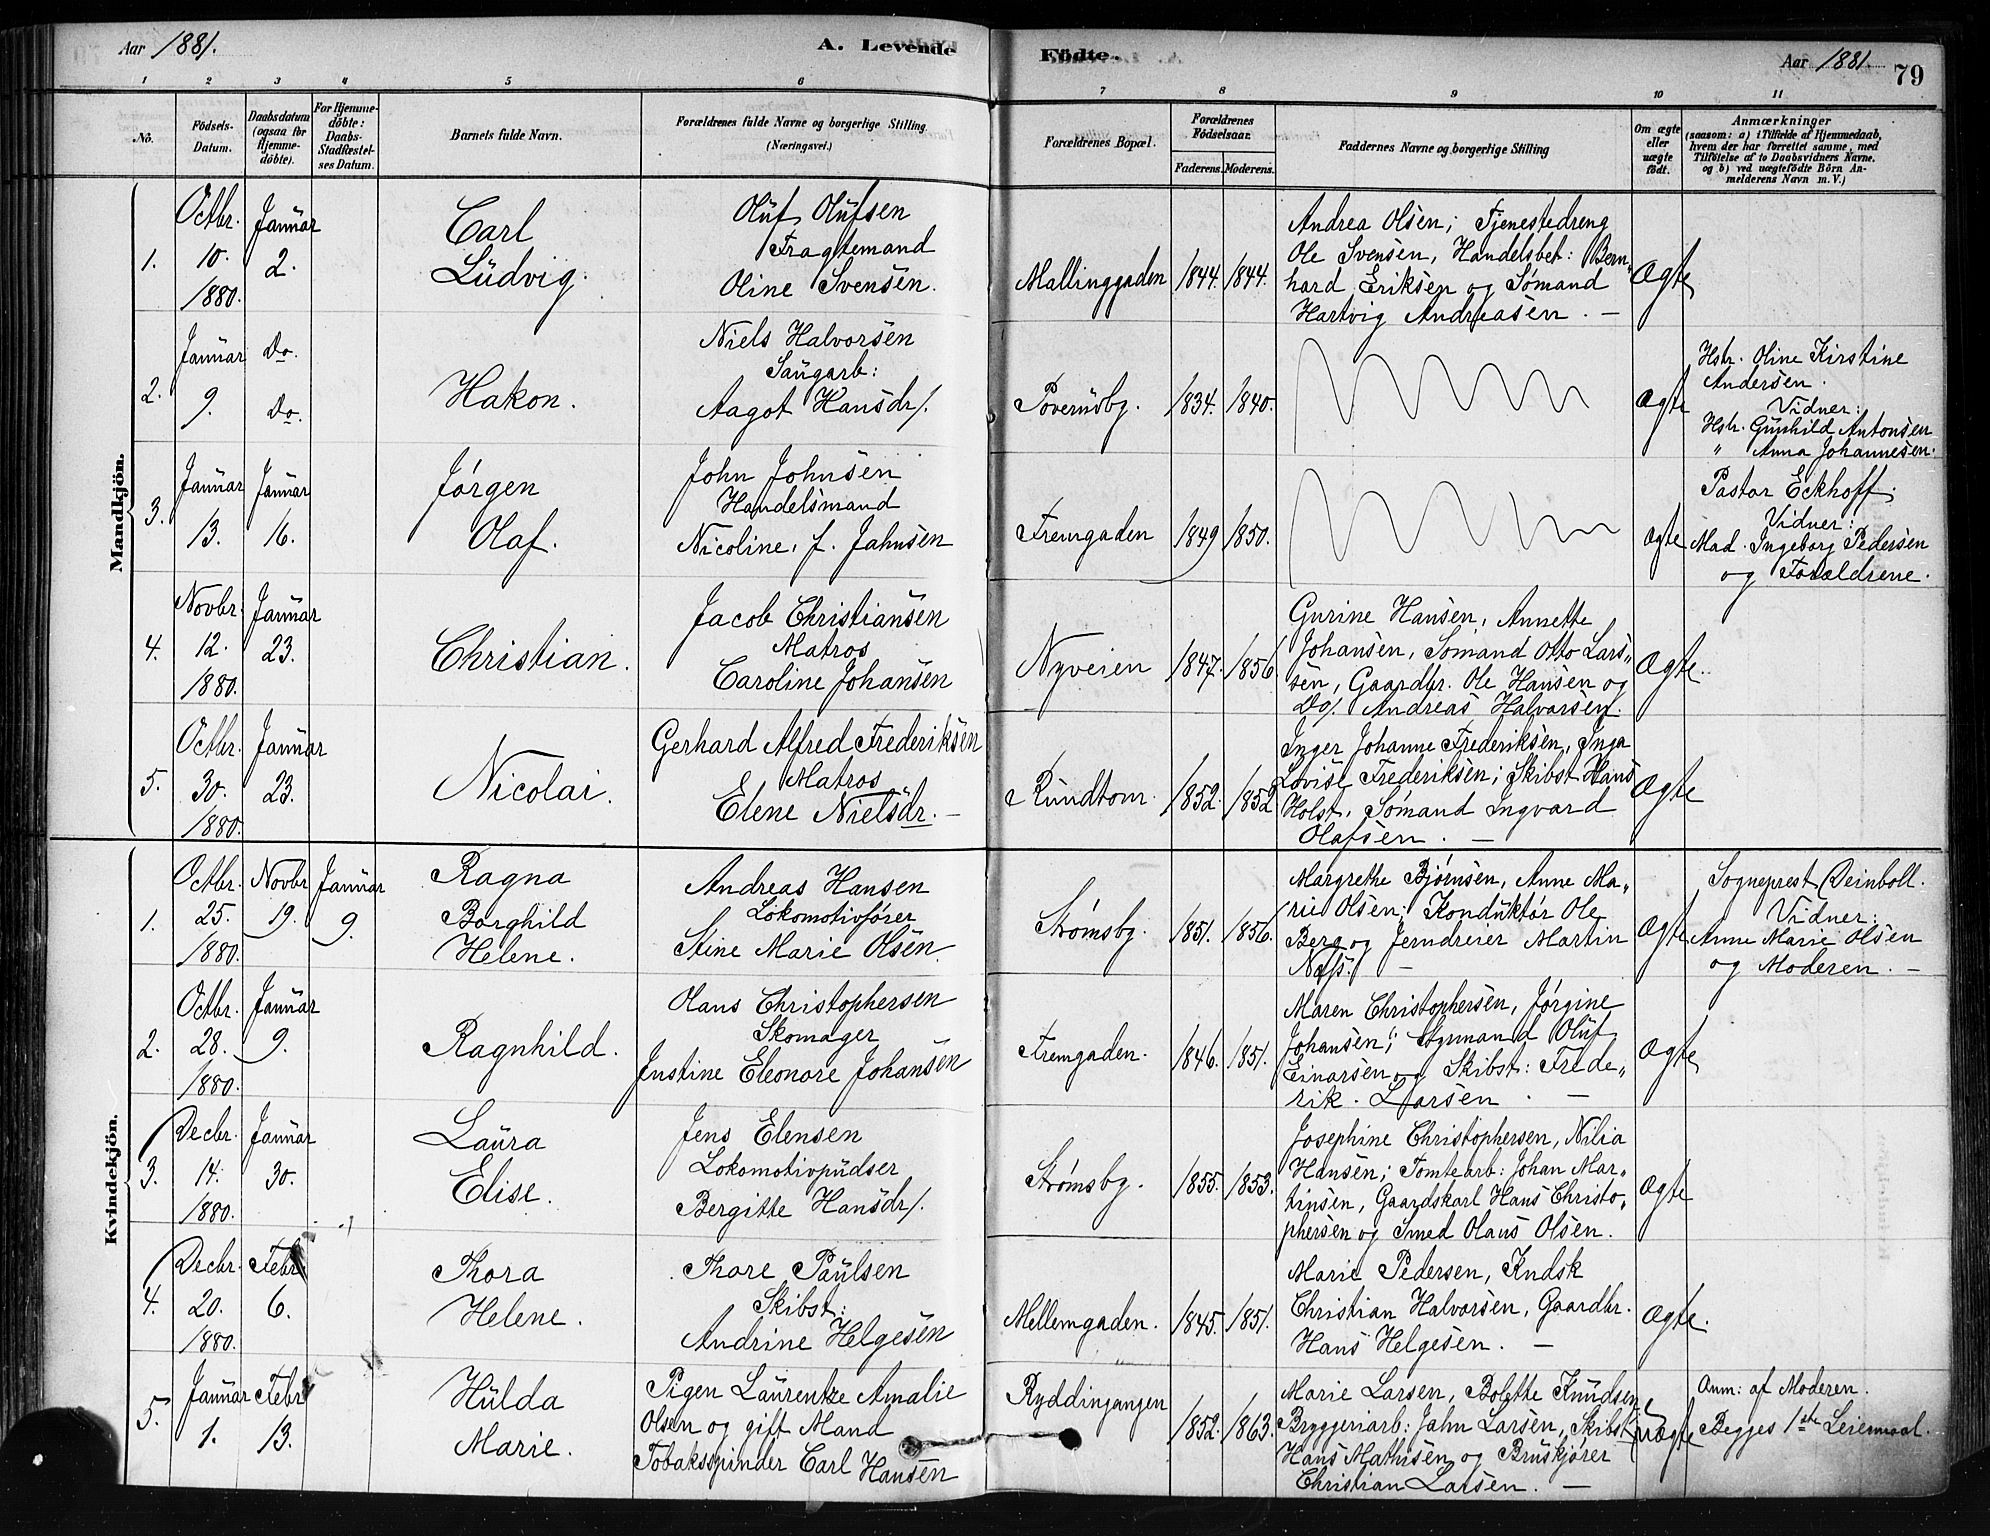 Aar 1881.
A. Levende Födte.
Aar 1881.
79
1 2 3 4 5 6 7 8 9 10 11
No.
Födsels-Datum.
Daabsdatum (ogsaa for Hjemme-döbte).
For Hjemme-döbte: Daabs-Stadfæstel-ses Datum.
Barnets fulde Navn.
Forældrenes fulde Navne og borgerlige Stilling (Næringsvei.)
Forældrenes Bopæl.
Forældrenes Födselsaar.
Faderens. Moderens.
Faddernes Navne og borgerlige Stilling
Om ægte eller uægte födt.
Anmærkninger
(saasom: a) i Tilfælde af Hjemmedaab,
hvem der har forrettet samme, med
Tilföielse af to Daabsvidners Navne.
og b) ved uægtefödte Börn An-
melderens Navn m. V.)
Mandkjön.
1.
Octbr. 10. 1880.
Januar 2.
Carl
Ludvig.
Oluf Olufsen
Fragtemand
Oline Svensen.
Mallinggaden
1844. 1844.
Andrea Olsen; Tjenestedreng
Ole Svensen, Handelsbet: Bern„
hard Eriksen og Sømand
Hartvig Andreasen. —
Ægte
2.
Januar 9.
Do. Do.
Hakon.
Niels Halvorsen
Saugarb:
Aagot Hansdr/.
Poverusbg.
1834. 1840.
Ægte
Hstr. Oline Kirstine
Andersen.
Vidner:
Hstr. Gunhild Antonsen
„ Anna Johannesen.
3.
Januar 13.
Januar 16.
Jørgen
Olaf.
John Johnsen
Handelsmand
Nicoline, f. Jahnsen
Fremgaden
1849 1850.
Ægte
Pastor Eckhoff.
Vidner:
Mad. Ingeborg Pedersen
og Forældrene.
4.
Novbr. 12. 1880.
Januar 23.
Christian.
Jacob Christiansen
Matros
Caroline Johansen
Nyveien
1847. 1856.
Gurine Hansen, Annette
Johansen, Sømand Otto Lars„
sen, Gaardbr. Ole Hansen og
Do/. Andreas Halvorsen.
Ægte.
5.
Octbr. 30. 1880.
Januar 23.
Nicolai.
Gerhard Alfred Frederiksen
Matros
Elene Nielsdr. —
Rundtom.
1852. 1852
Inger Johanne Frederiksen, Inga
Lovise Frederiksen; Skibst Hans
Holst, Sømand Ingvard
Olafsen. —
Ægte
Kvindekjön.
1.
Octbr. 25. 1880.
Novbr 19.
Januar 9.
Ragna
Borghild
Helene.
Andreas Hansen
Lokomotivfører
Stine Marie Olsen.
Strømsbg.
1851. 1856.
Margrethe Bjørnsen, Anne Ma„
rie Olsen; Konduktør Ole
Berg og Jerndreier Martin
Næss. —
Ægte
Sogneprest Deinboll.
Vidner:
Anne Marie Olsen
og Moderen. —
2.
Octbr. 28. 1880.
Januar 9.
Ragnhild.
Olaus Christophersen
Skomager
Justine Eleonore Johansen
Fremgaden.
1846. 1851.
Maren Christophersen, Jørgine
Johansen; Styrmand Oluf
Einarsen og Skibst: Frede„
rik. Larsen. —
Ægte
3.
Decbr. 14. 1880.
Januar 30.
Laura
Elise.
Jens Elensen
Lokomotivpudser
Bergitte Hansdr/.
Strømsbg.
1855. 1853.
Josephine Christophersen, Nilia
Hansen; Tomtearb: Johan Mar„
tinsen, Gaardskarl Hans Christo„
phersen og Smed Olaus Olsen.
Ægte
4.
Decbr. 20. 1880.
Febr 6.
Thora
Helene.
Thore Paulsen
Skibst:
Andrine Helgesen
Mellemgaden.
1845. 1851.
Marie Pedersen, Kudsk
Christian Halvorsen, Gaardbr.
Hans Helgesen. —
Ægte.
5.
Januar 1.
Febr 13.
Hulda
Marie.
Pigen Laurentze Amalie
Olsen og gift Mand
Tobaksspinder Carl Hansen
Ryddingangen
1852. 1863.
Marie Larsen, Bolette Knudsen,
Bryggeriarb: Jahn Larsen, Skibst
Hans Mathisen og Bruskjører
Christian Larsen. —
Uægte
Anm: af Moderen.
Begges 1ste Leiermaal.